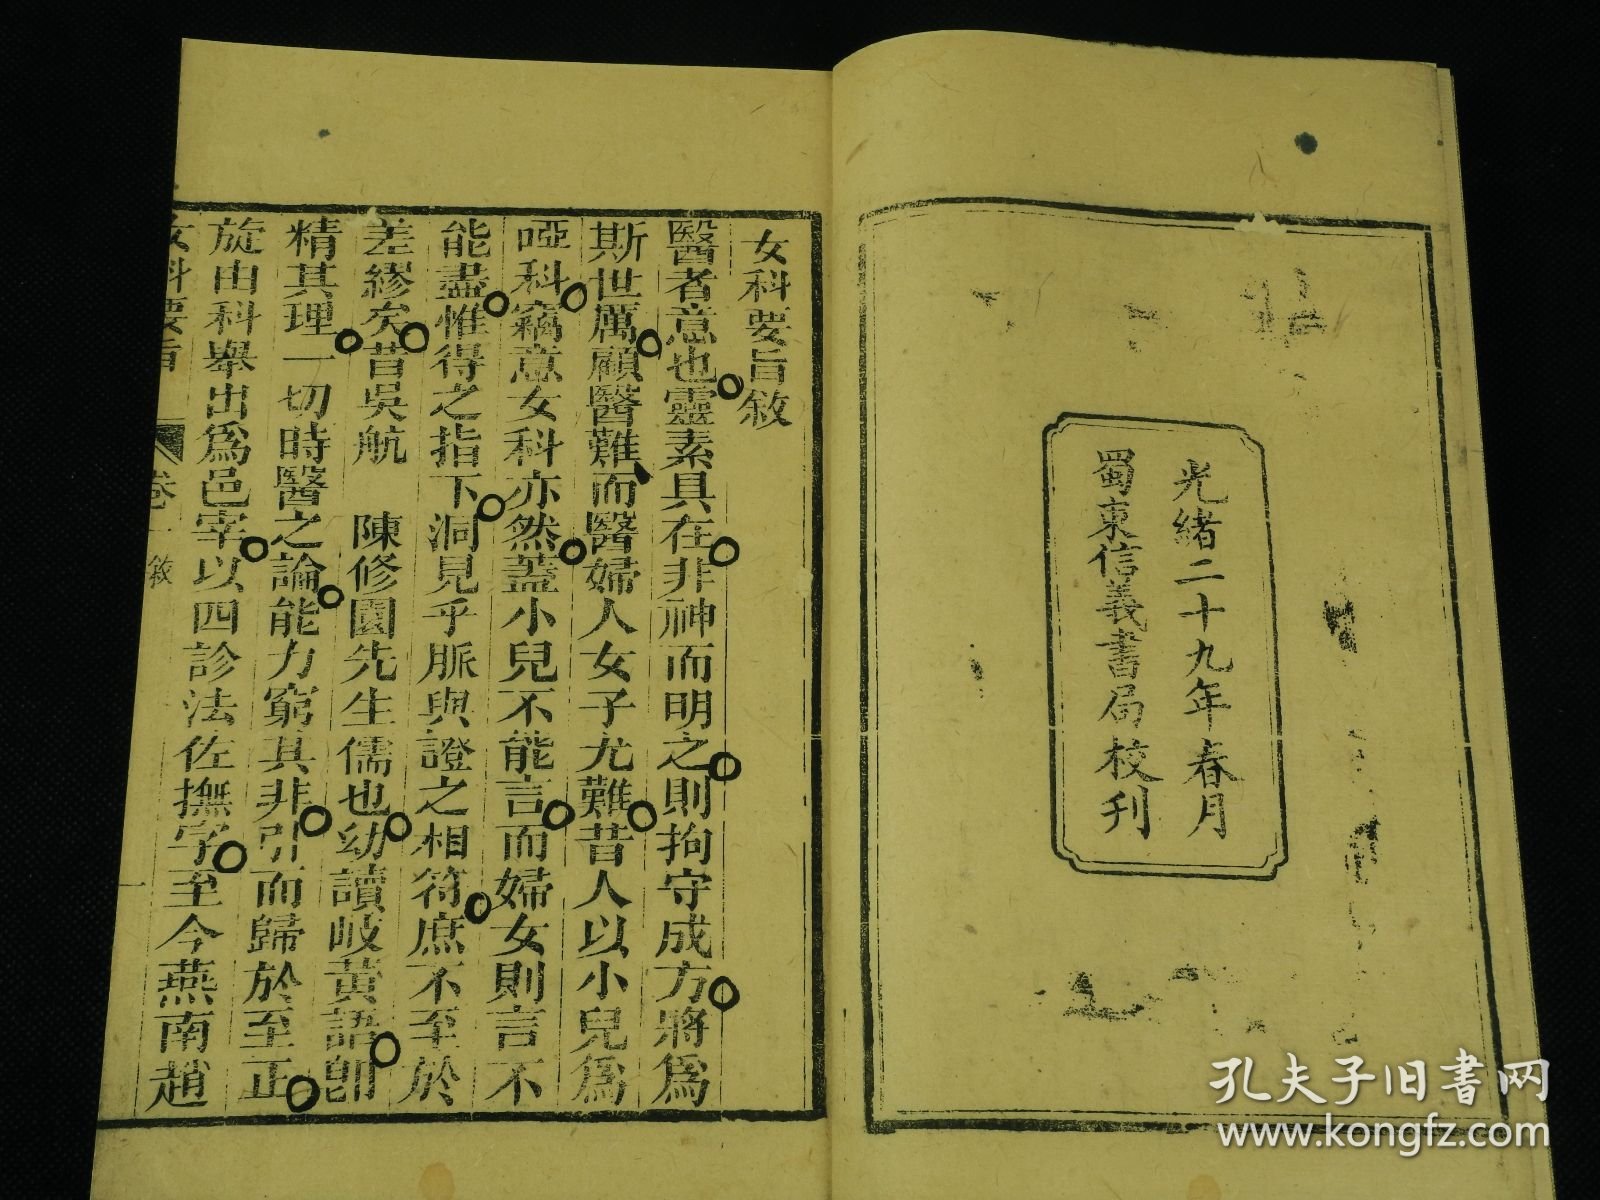 光緒二十九年春月
蜀東信義書局校刊
女科要旨敘
醫者意也靈素具在非神而明之則拘守成方將為
斯世厲顧醫難而醫婦人女子尤難昔人以小兒為
啞科竊意女科亦然蓋小兒不能言而婦女則言不
能盡惟得之指下洞見乎脈與證之相符庶不至於
差繆矣昔吳航 陳修園先生儒也幼讀岐黃語卽
精其理一切時醫之論能力窮其非引而歸於至正
旋由科舉出爲邑宰以四診法佐撫字至今燕南趙
女科要旨 卷一 敘 一
孔夫子旧書网
www.kongfz.com